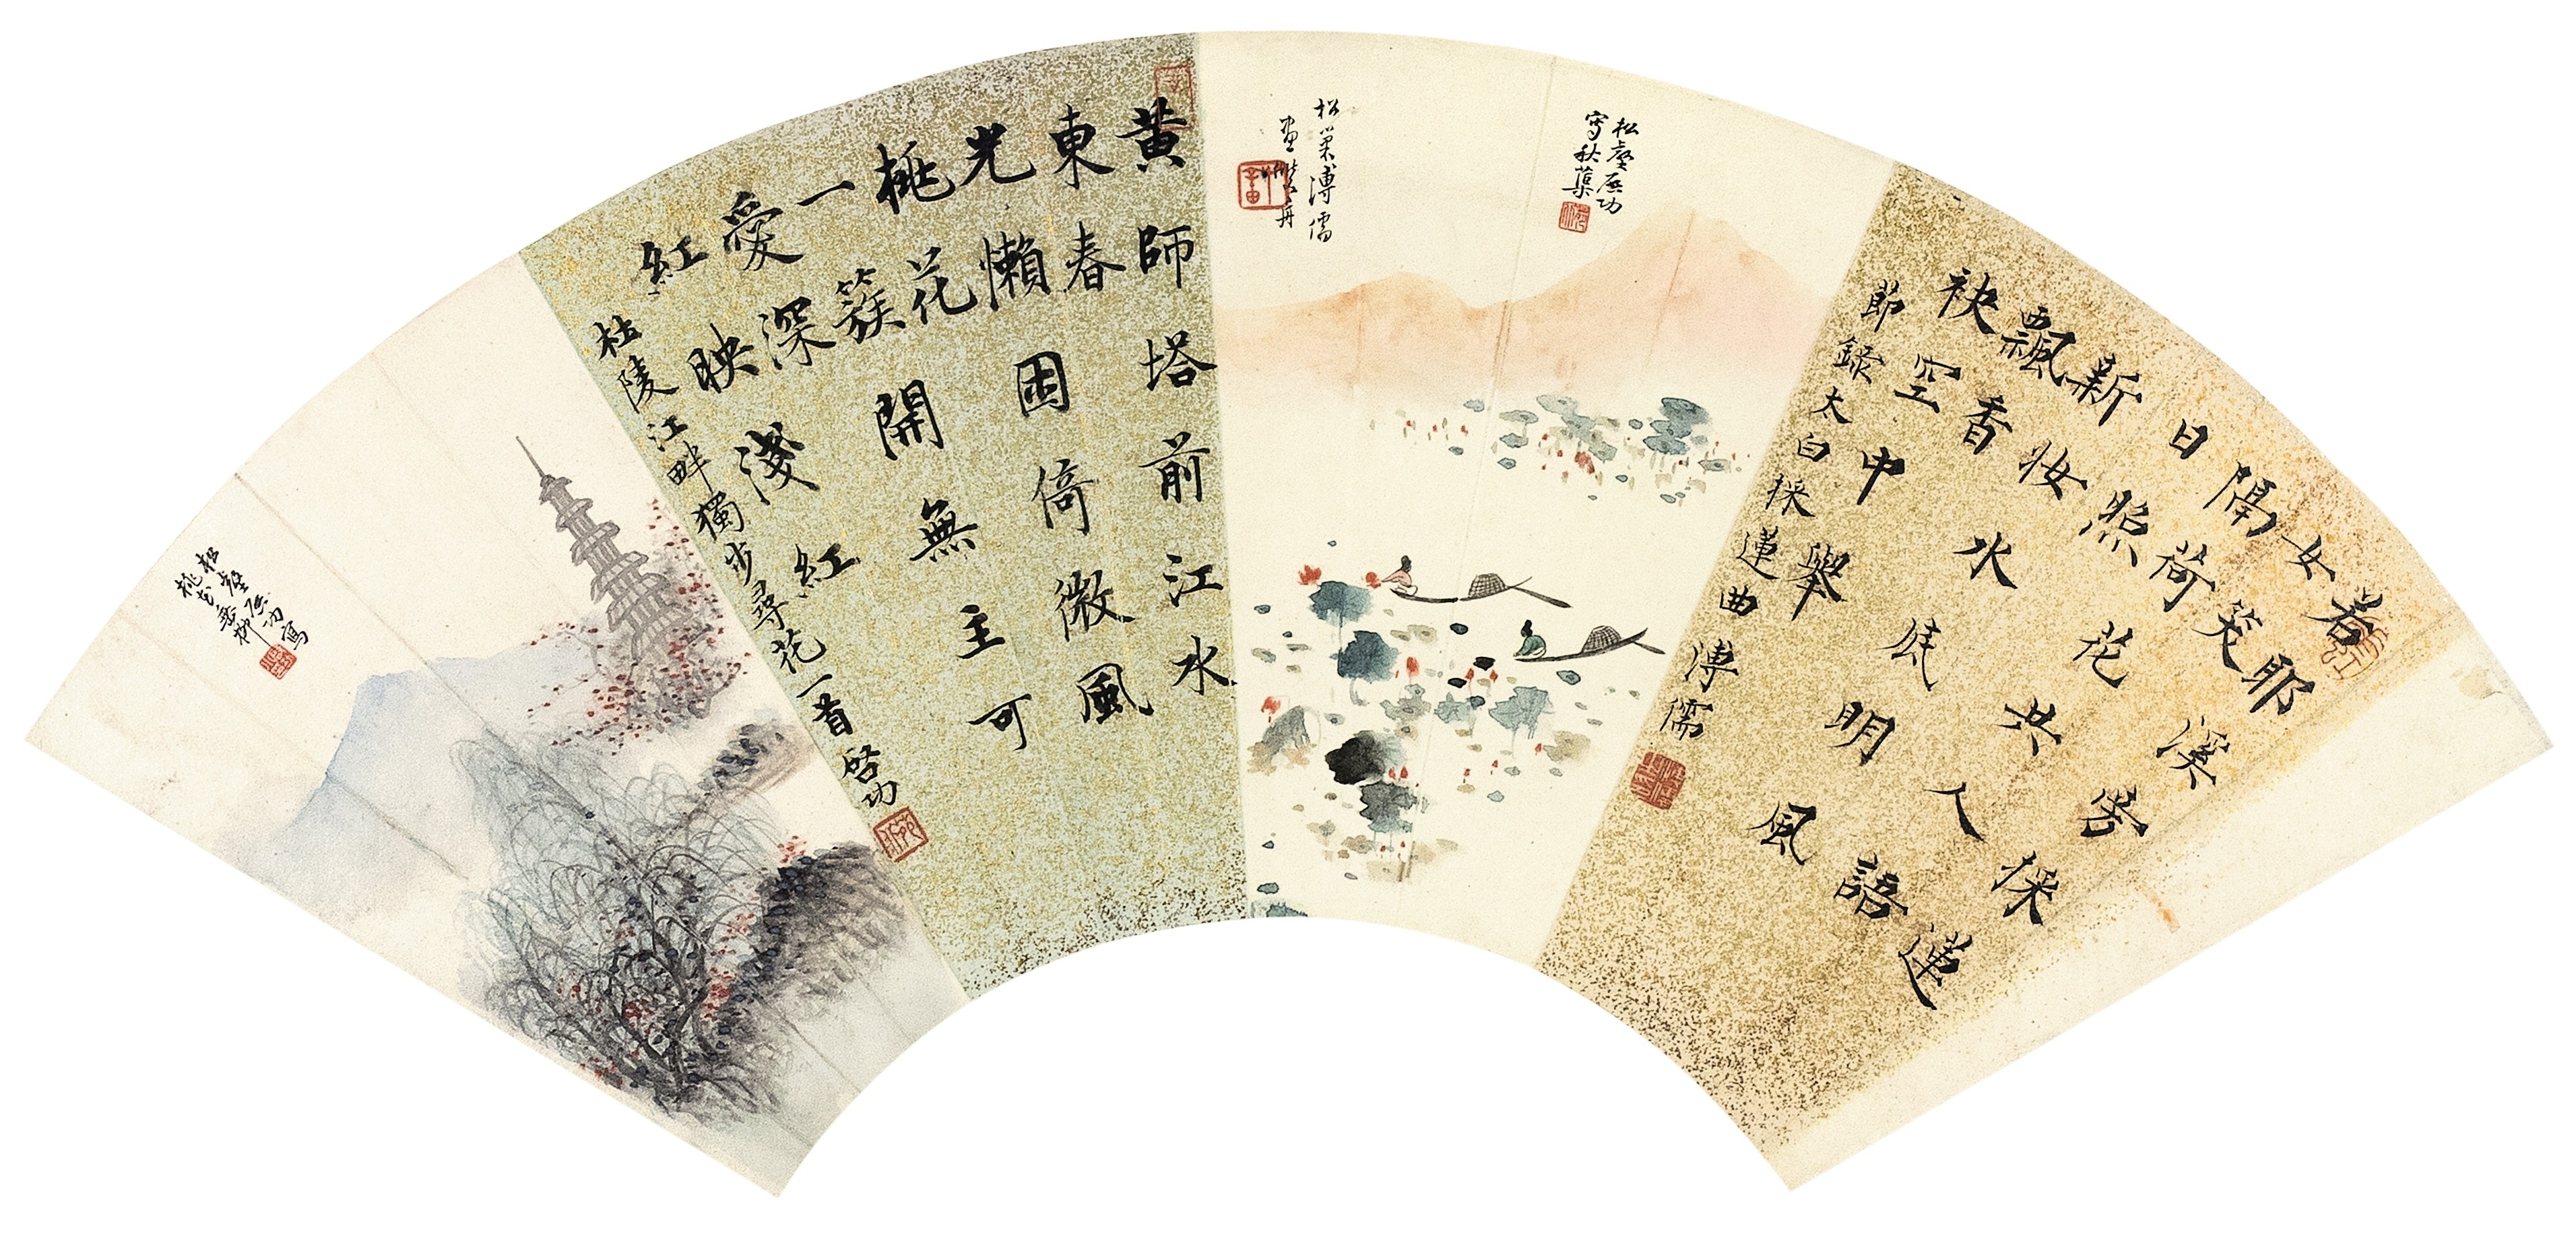 若耶溪旁採蓮
女笑
隔荷花共人語
日照
新妝水底明風
飄香
袂空中舉
節錄太白採蓮曲 溥儒
松壑啓功
寫秋蕖
松巢溥儒
畫 舟
黃師塔前江水
東春
光懶困倚微風
桃花
一簇開無主可
愛深
紅映淺紅
杜陵江畔獨步尋花一首 啓功
松壑啓功寫
桃花垂柳